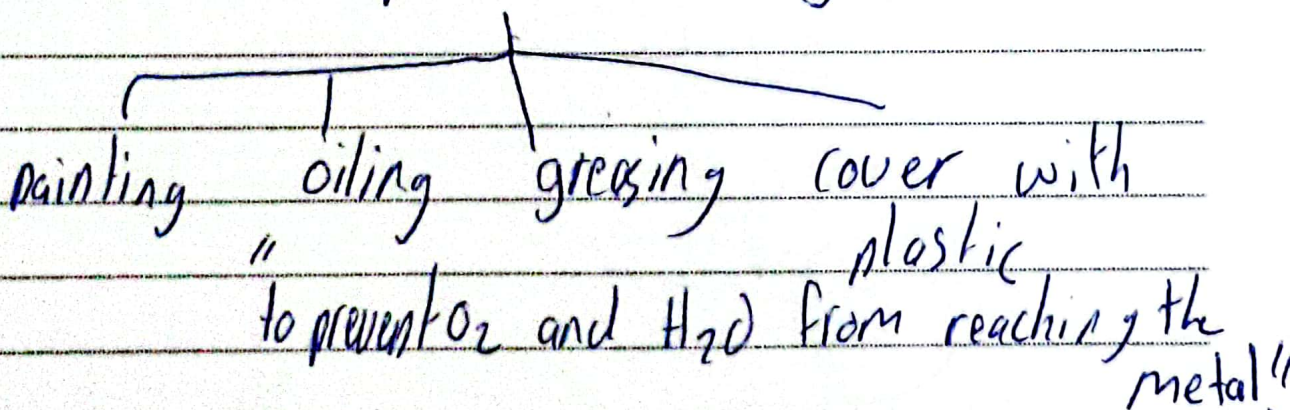 painting oiling greasing cover with
plastic
" to prevent O2 and H2O from reaching the
metal."